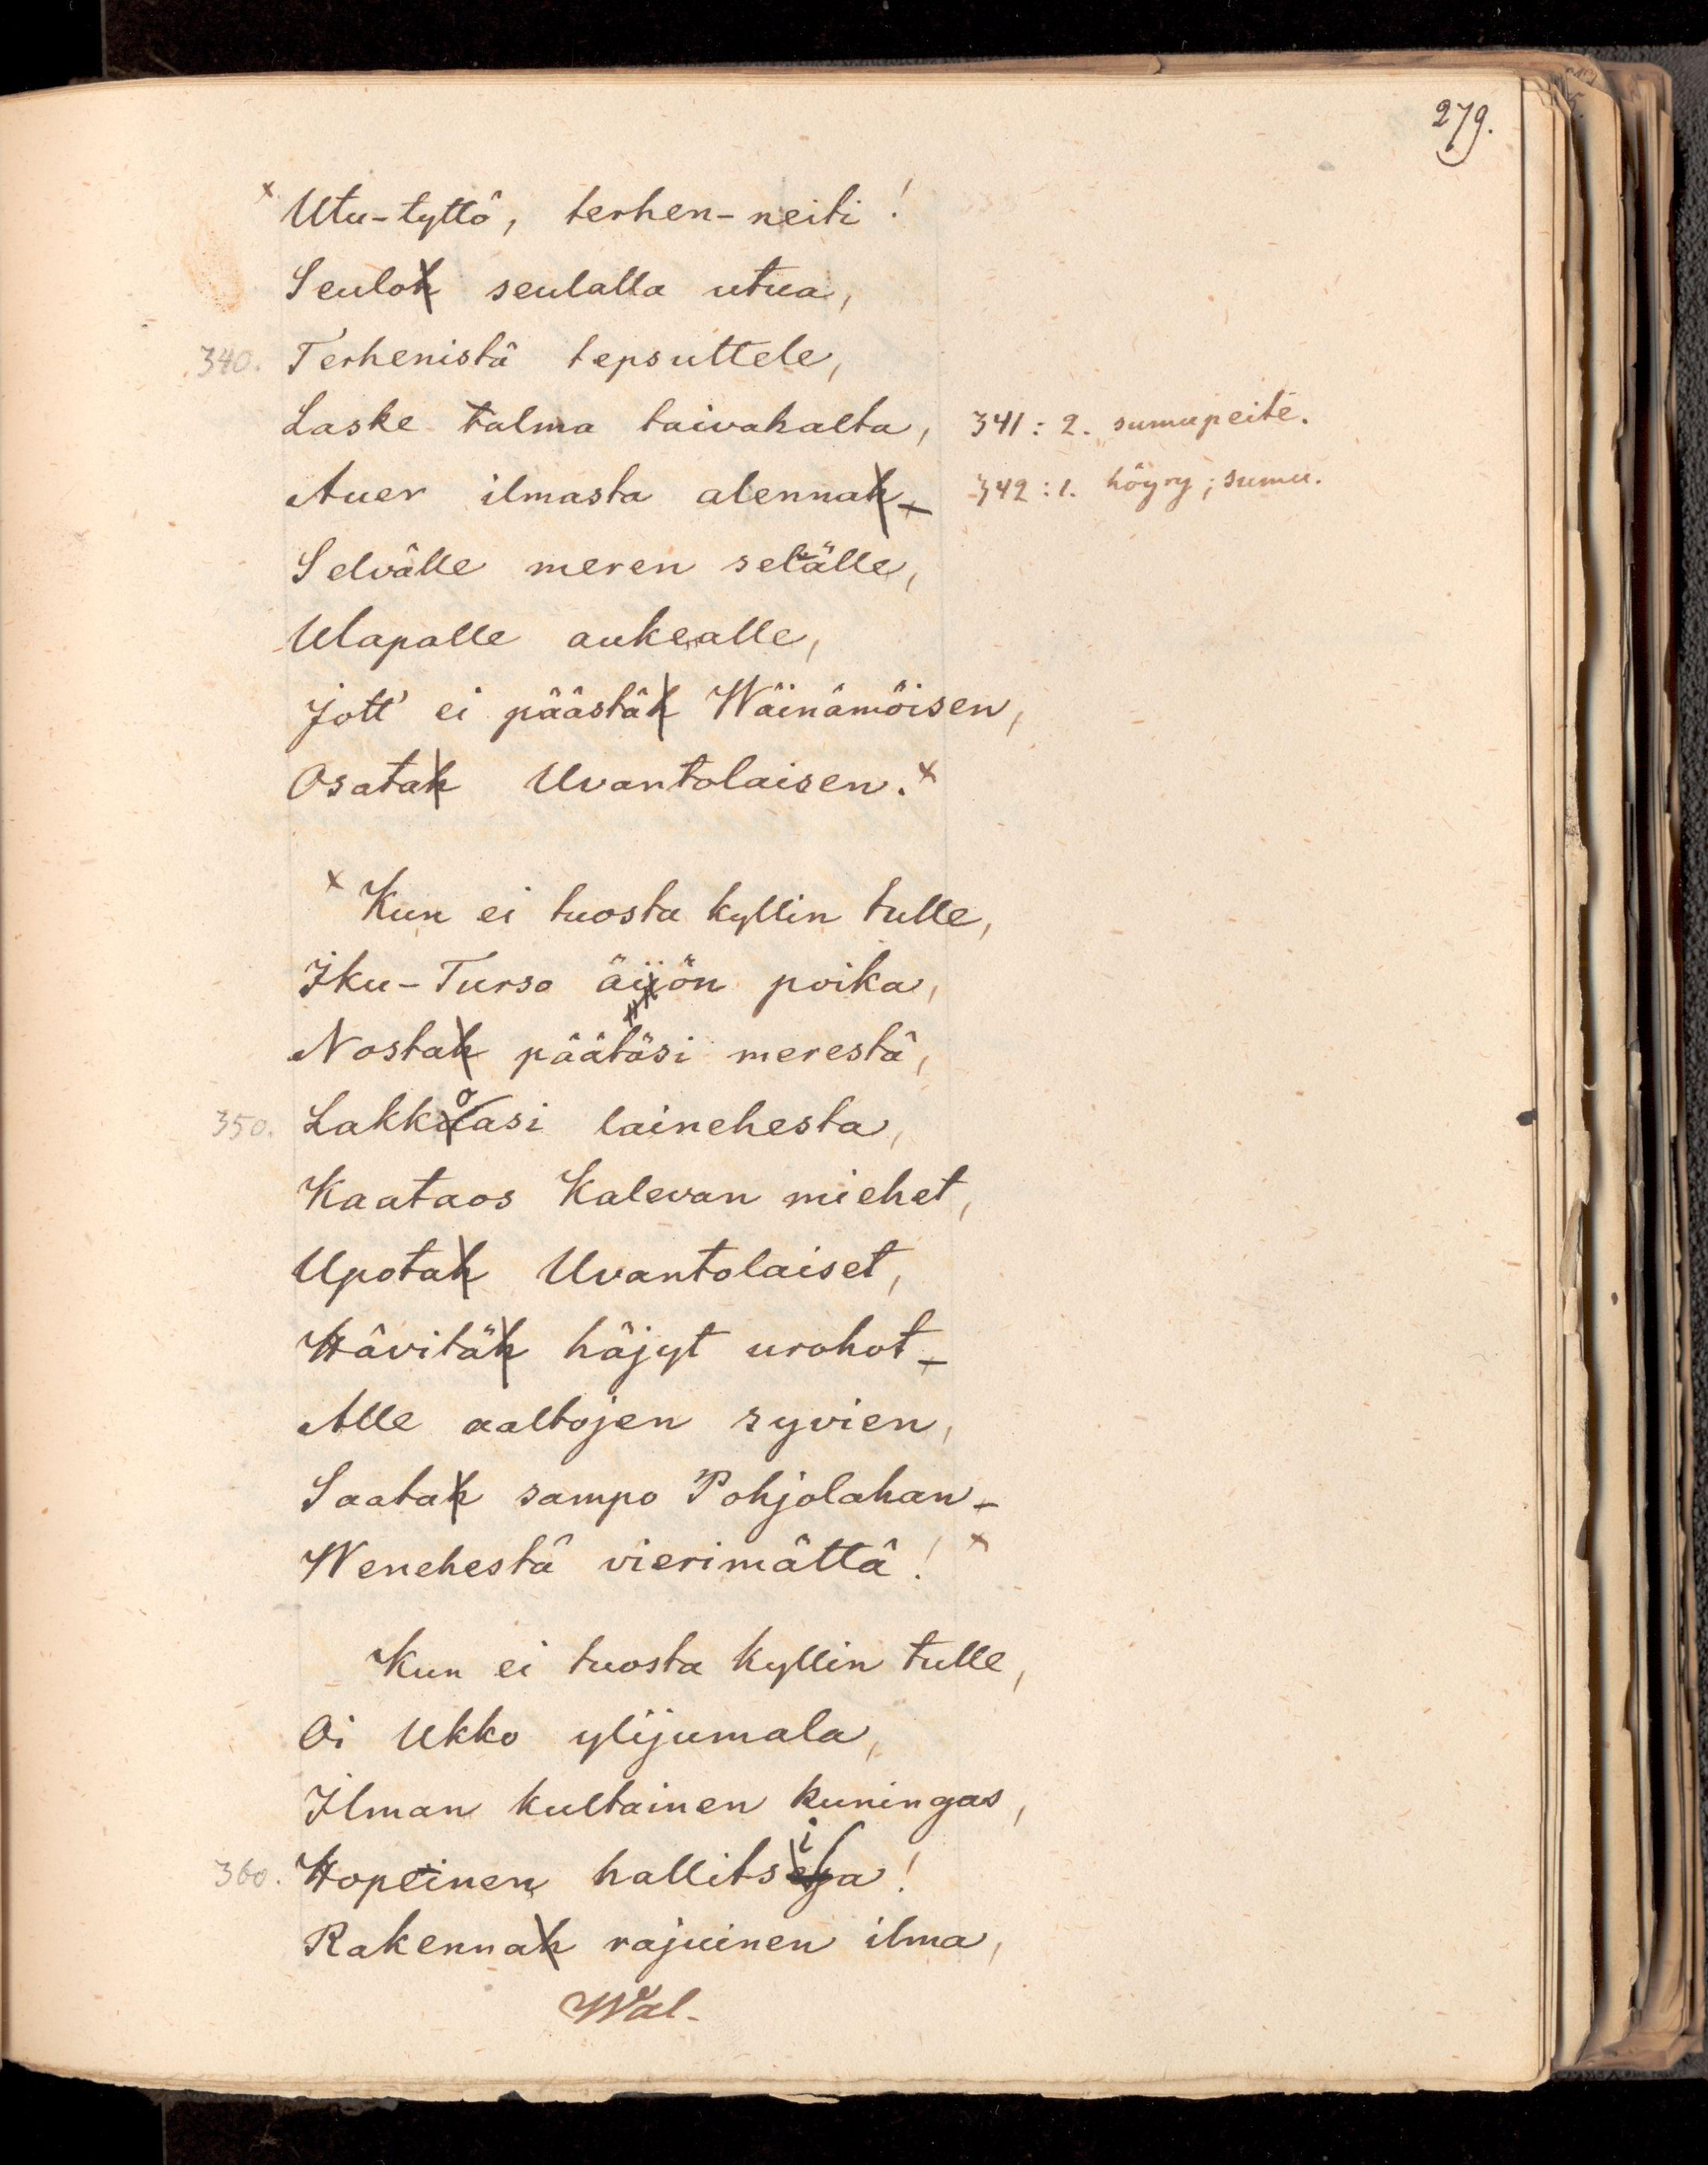 279.
x Utu-tyttö, terhen-neiti!
Seulok seulalla utua,
340. Terhenistä tepsuttele,
Laske talma taivahalta, 341: 2. sumupeite.
Auer ilmasta alennak- 342: 1. höyry; sumu.
Selvälle meren selälle,
Ulapalle aukealle,
Jott' ei päästäk Wäinämöisen,
Osatak Uvantolaisen. x
x Kun ei tuosta kyllin tulle,
Iku-Turso äijön poika,
Nostak päätäsi merestä,
350. Lakkoasi lainehesta,
Kaataos Kalevan miehet,
Upotak Uvantolaiset,
Hävitäk häjyt urohot-
Alle aaltojen syvien,
Saatak sampo Pohjolahan-
Wenehestä vierimättä! x
Kun ei tuosta kyllin tulle,
Oi Ukko ylijumala,
Ilman kultainen kuningas,
360. Hopeinen hallitsija!
Rakennak rajuinen ilma,
Wal-